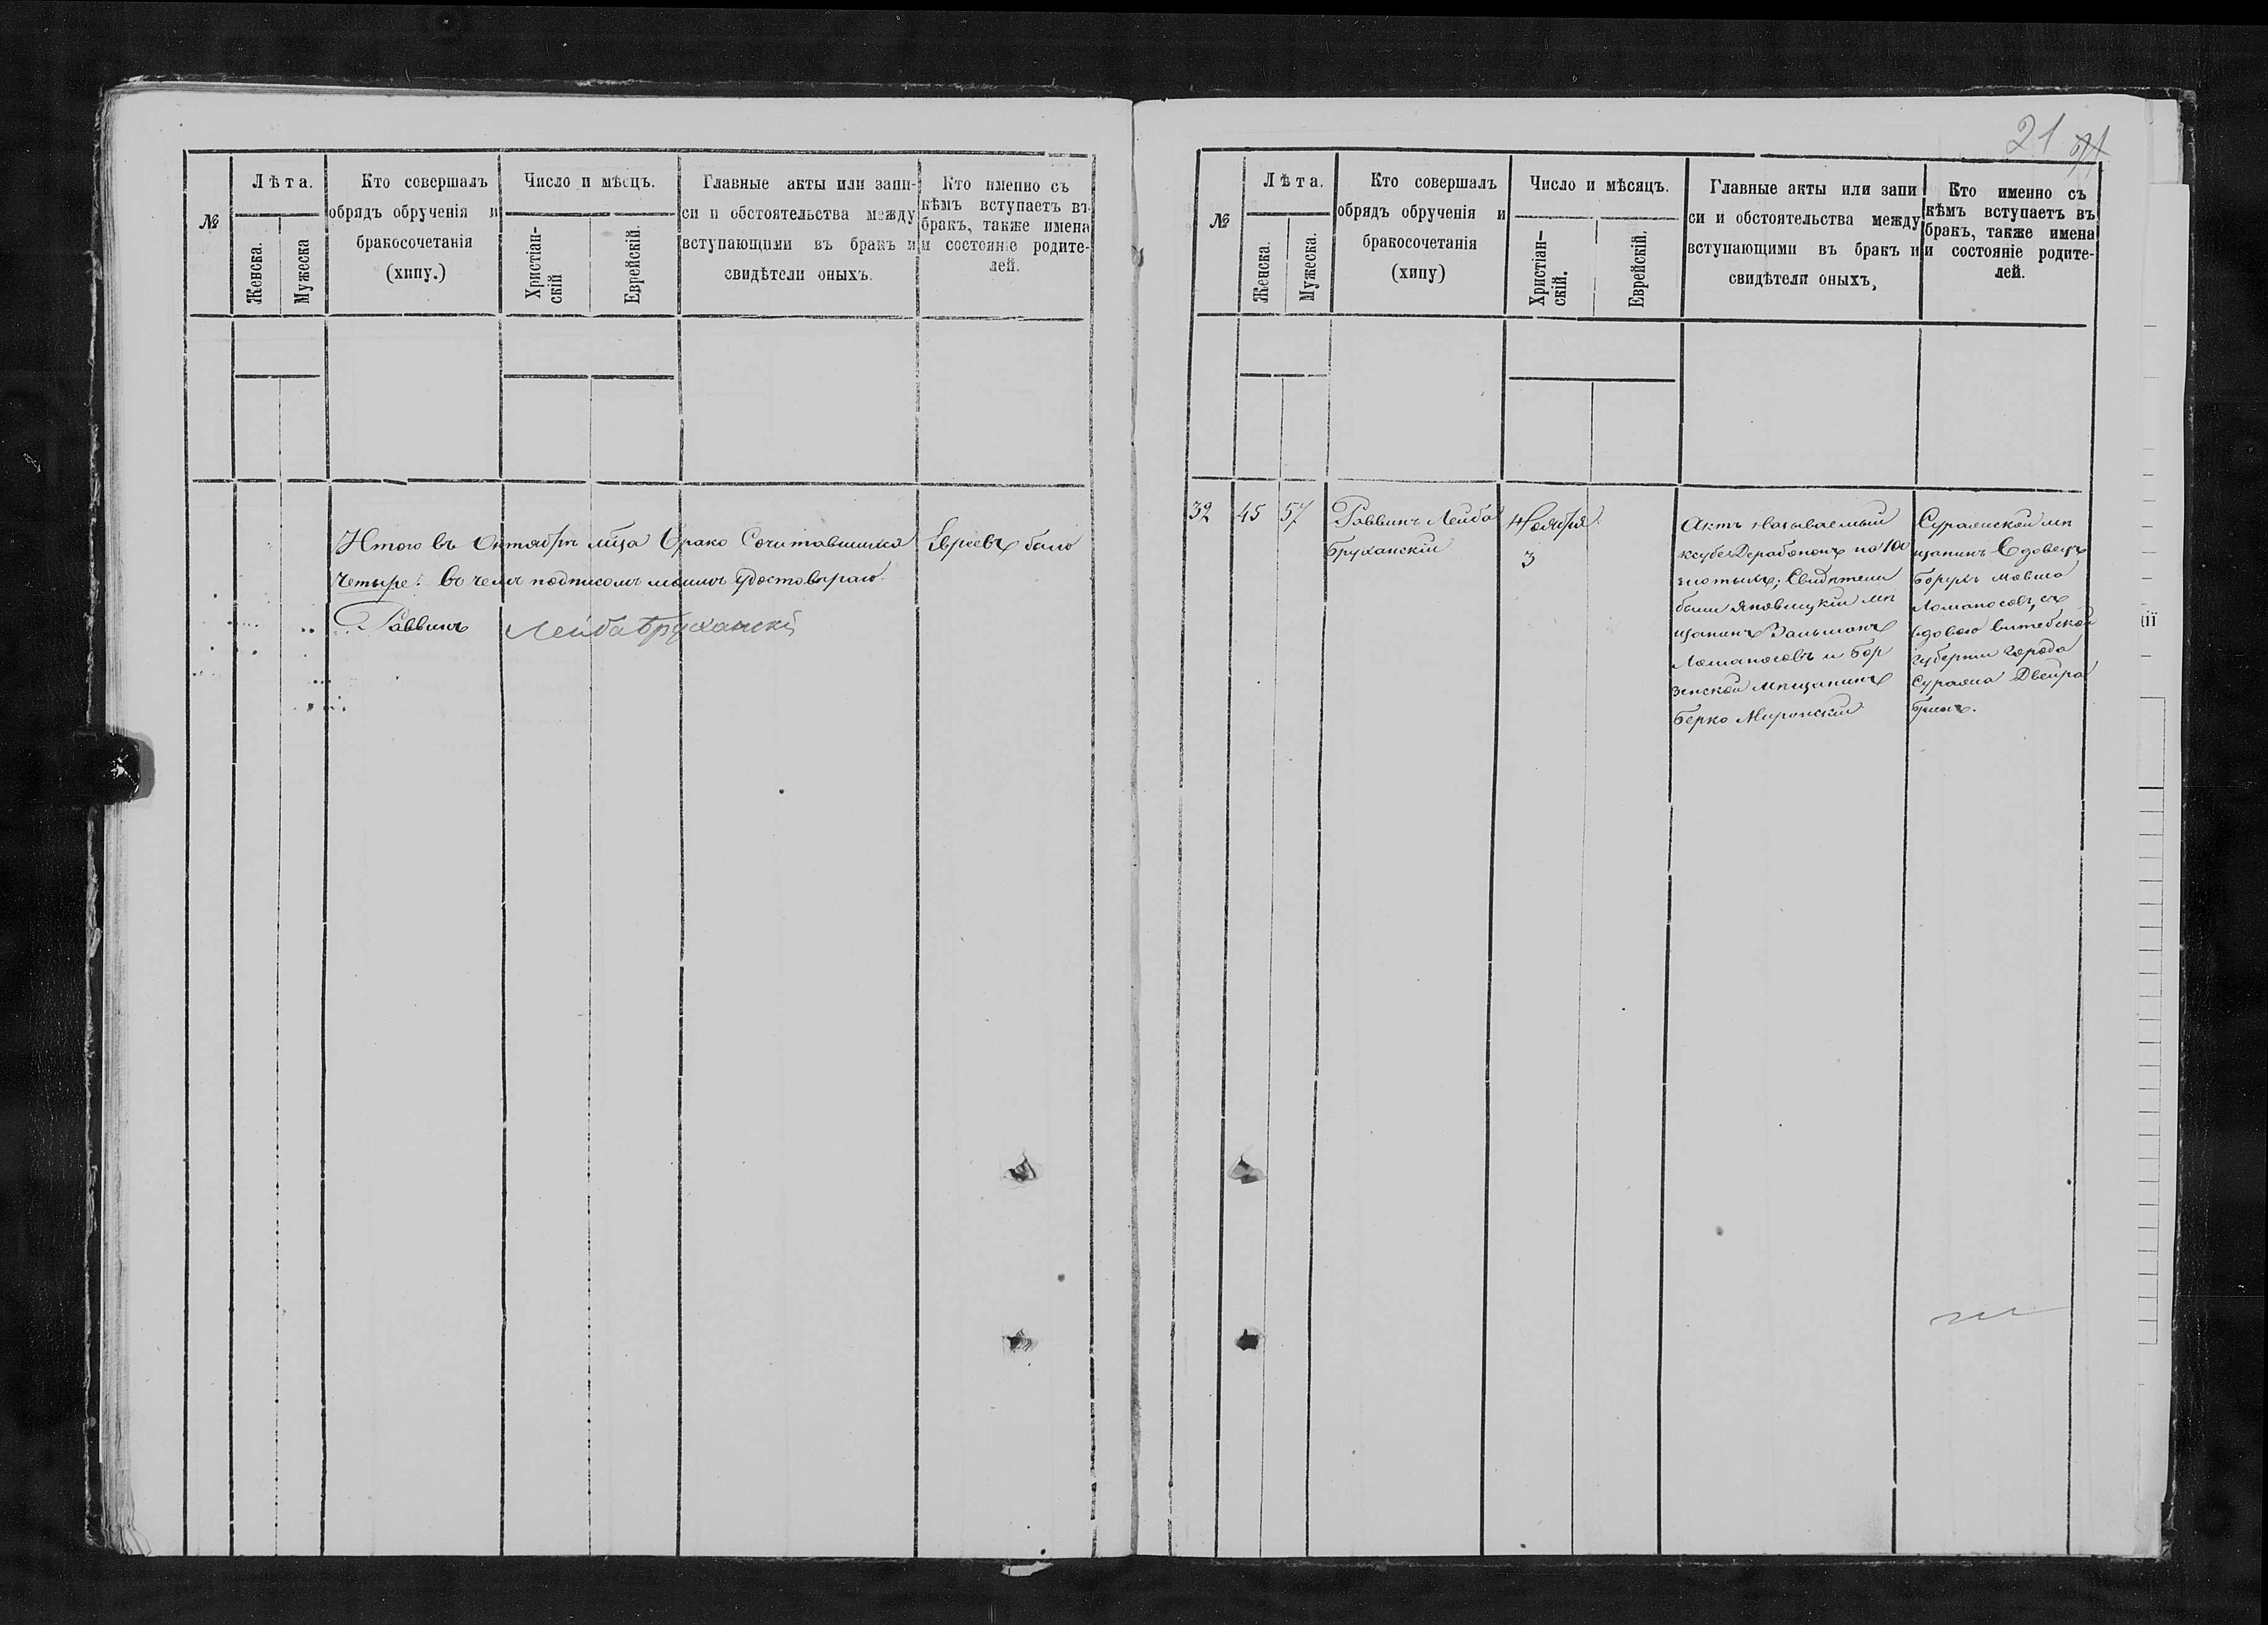 №
Лѣта.
Женска.
Мужеска
Кто совершалъ
обрядъ обрученія и
бракосочетанія
(хипу.)
Число и мѣсцъ.
Христіан-
скій
Еврейскій.
Главные акты или запи-
си и обстоятельства между
вступающими въ бракъ и
свидѣтели оныхъ.
Кто именно съ
кѣмъ вступаетъ въ
бракъ, также имена
и состояніе родите-
лей.
Итого въ Октябрѣ мѣца Брако Сочитавшихся Евреевъ было
Четыре. Въ чемъ подписомъ моимъ удостовѣраю.
Раввинъ Лейба Бруханскій
21
№
Лѣта.
Женска.
Мужеска.
Кто совершалъ
обрядъ обрученія и
бракосочетанія
(хипу)
Число и мѣсяцъ.
Христіан-
скій.
Еврейскій.
Главные акты или запи
си и обстоятельства между
вступающими въ бракъ и
свидѣтели оныхъ,
Кто именно съ
кѣмъ вступаетъ въ
бракъ, также имена
и состояніе родите-
лей.
32
45
57
Раввинъ Лейба
Бруханскій
Ноября
3
Актъ называемый
ксубе Дерабононъ на 100
злотыхъ; Свидѣтели
были Яновицкій мѣ
щанинъ Зальманъ
Ломаносовъ и Бор
зенской мѣщанинъ
Берко Миронскій
Суражской мѣ
щанинъ Вдовецъ
Борухъ Мовша
Ломаносовъ, съ
вдовою Витебской
губерніи города
Суража Двейра